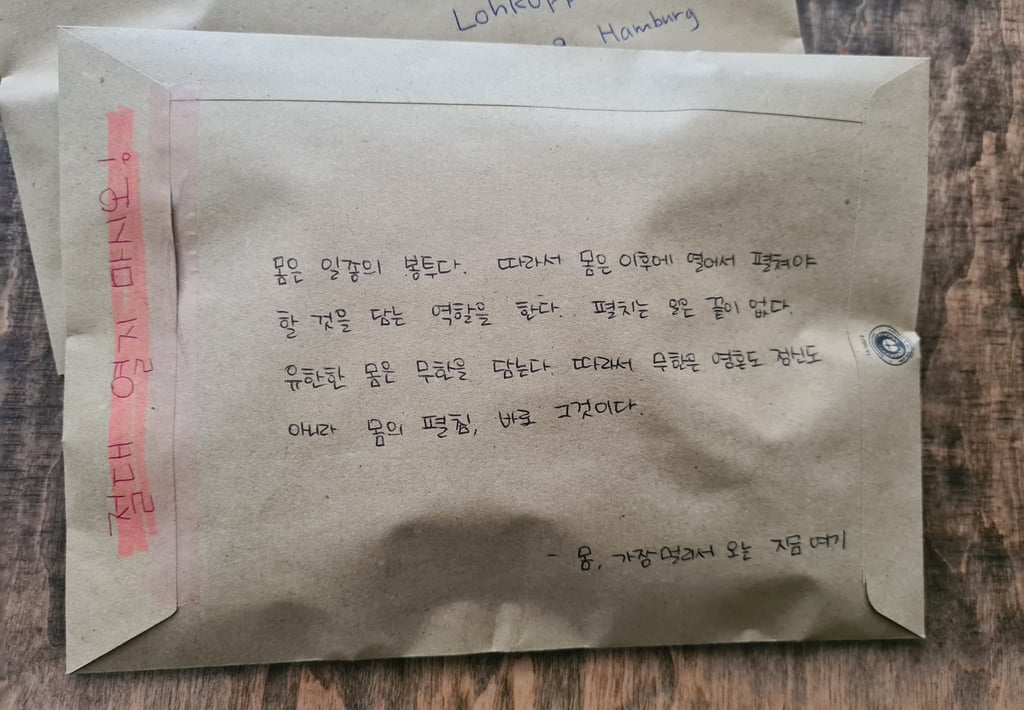 Hamburg
절대
몸은 일종의 봉투다. 따라서 몸은 이후에 열어서 펼쳐야
할 것을 담는 역할을 한다. 펼치는 일은 끝이 없다.
유한한 몸은 무한을 담는다 따라서 무한은 영혼도 정신도
아니라 몸의 펼침, 바로 그것이다.
- 몸, 가장 멀리서 오는 지금 여기